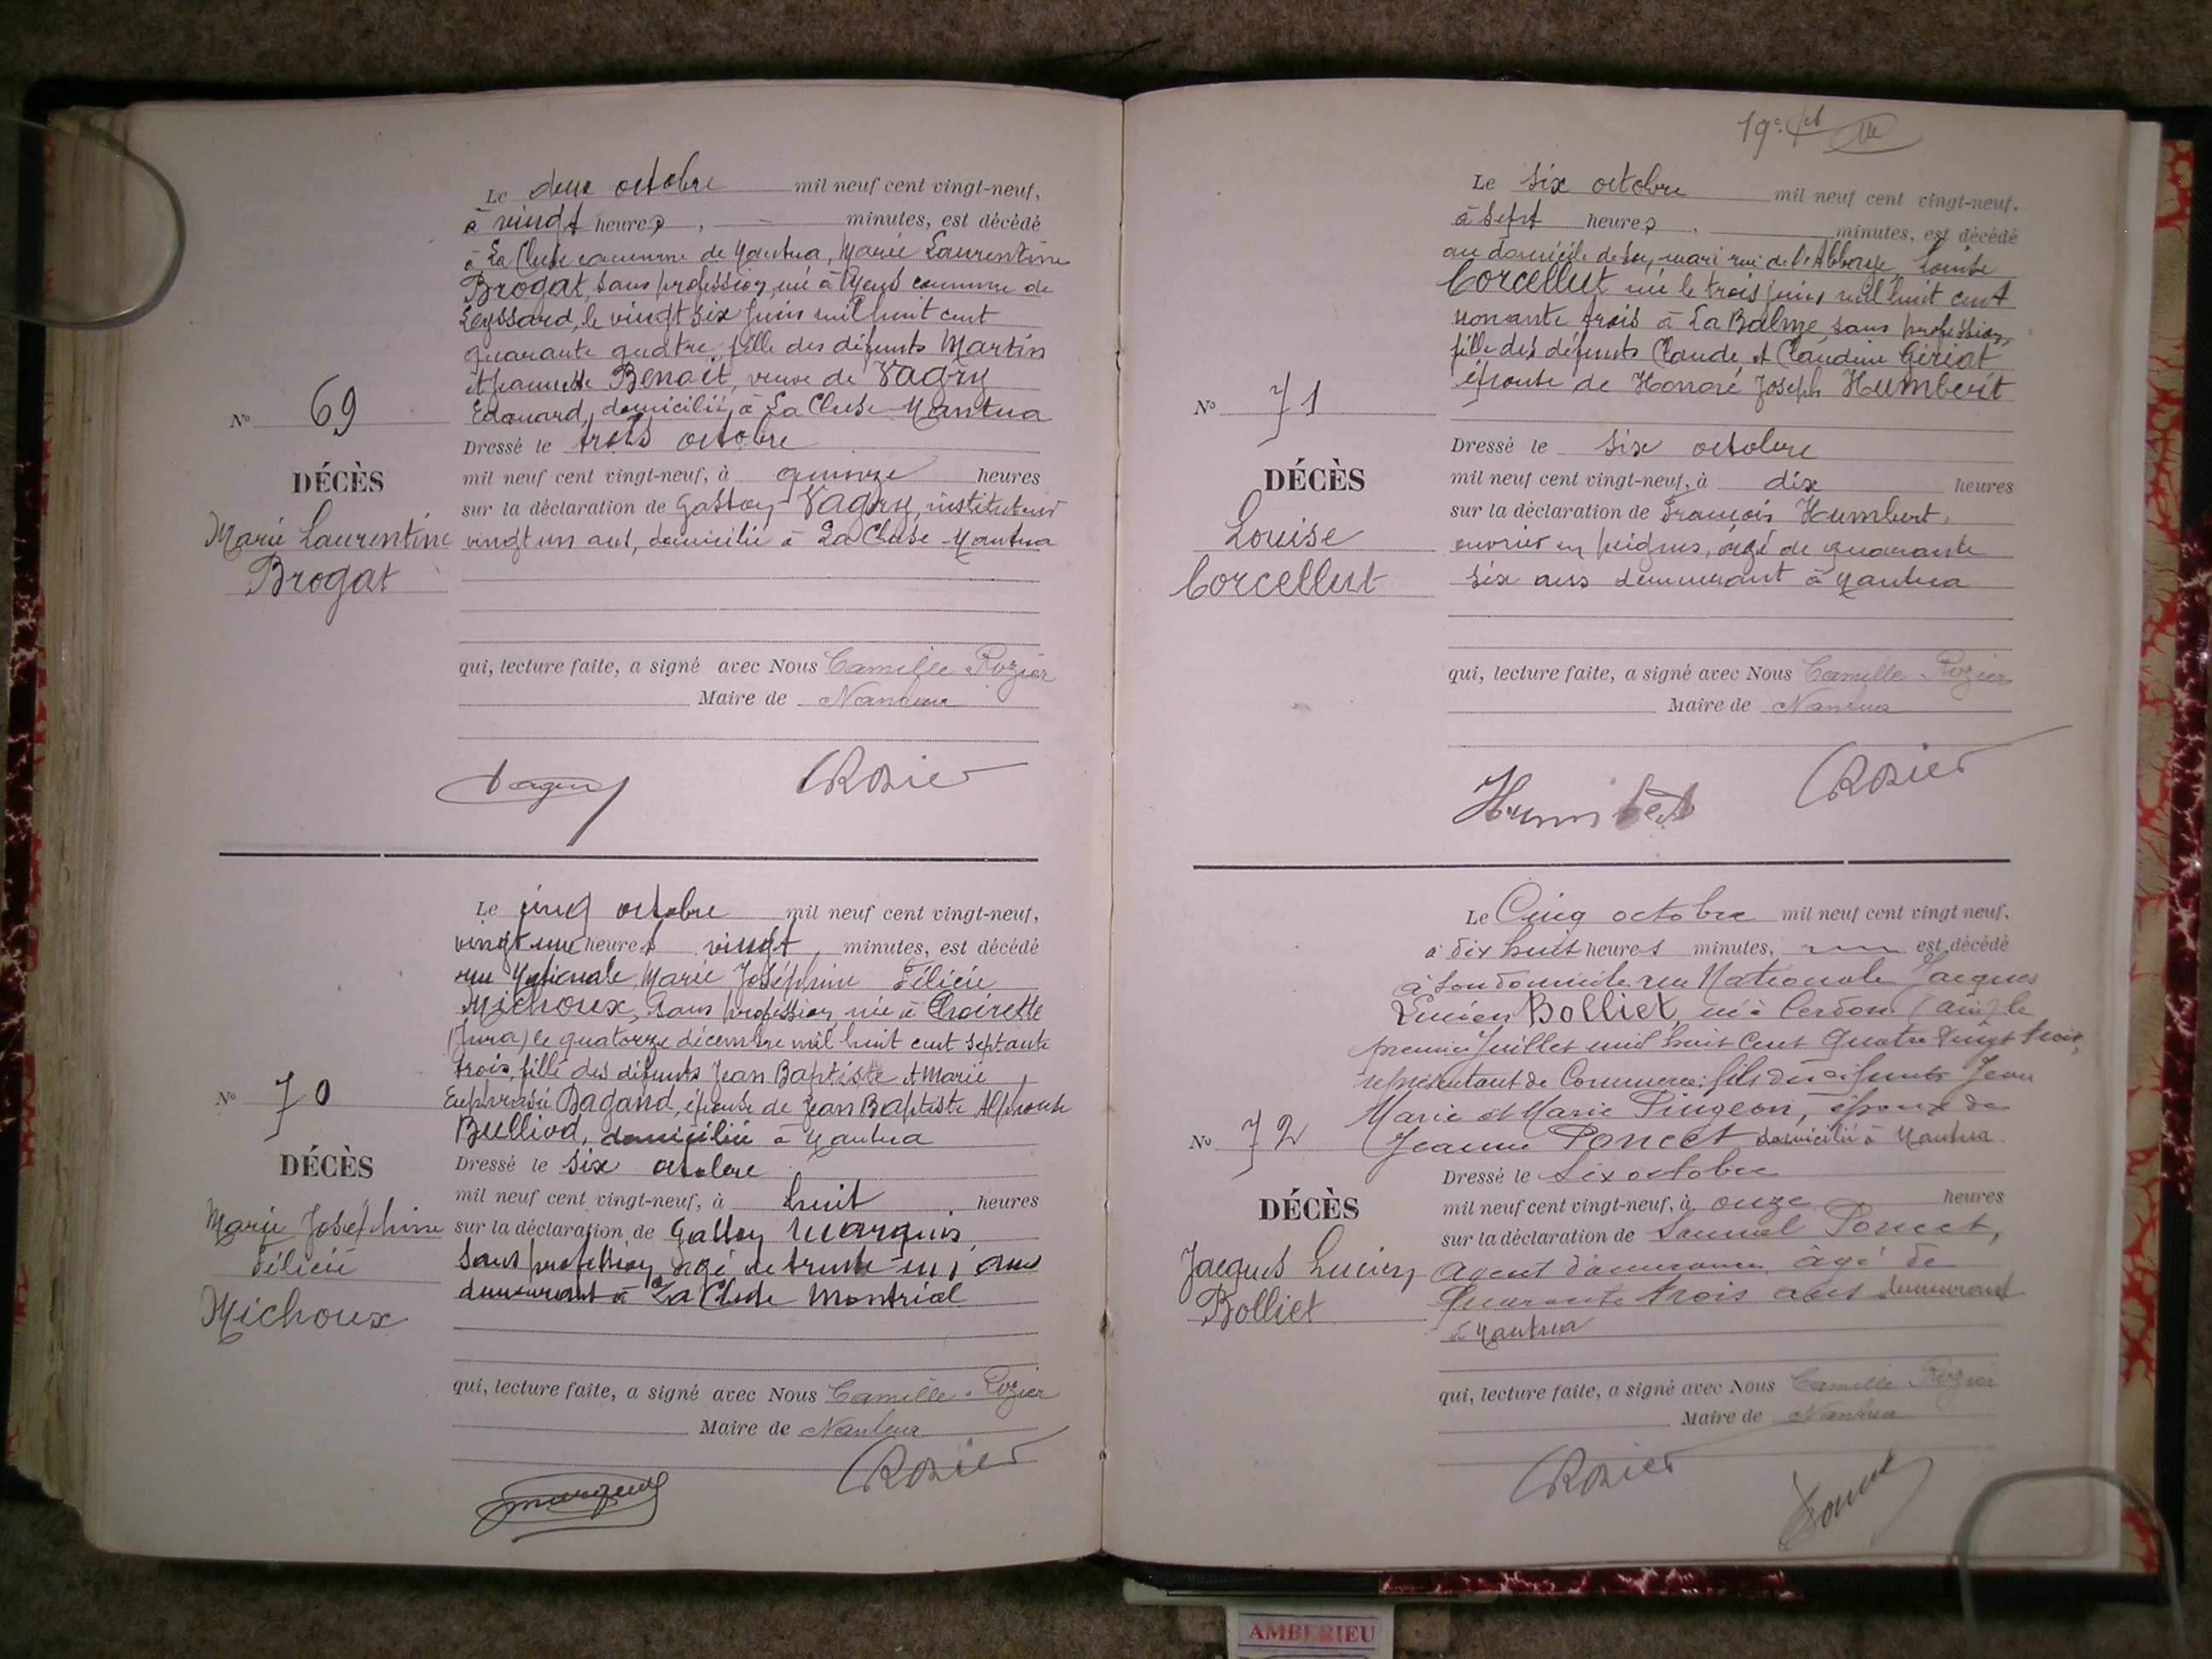 Le deux octobre mil neuf cent vingt-neuf,
à vingt heures, - minutes, est décédé
à La Cluse commune de Nantua, Marie Laurentine
Brogat, sans profession, née à commune de
Leyssard, le vingt six juin mil huit cent
quarante quatre, fille des défunts Martin
et Jeannette Benoit, veuve de Vagry
Edouard, domiciliée à La Cluse-Nantua
Nº 69
Dressé le trois octobre
DÉCÈS
mil neuf cent vingt-neuf, à quinze heures
sur la déclaration de Gaston Vagry, instituteur
Marie Laurentine
vingt un ans, domicilié à La Cluse-Nantua
Brogat
qui, lecture faite, a signé avec Nous Camille Rozier
Maire de Nantua
Vagry
CRozier
Le cinq octobre mil neuf cent vingt-neuf,
vingt une heures vingt minutes, est décédé
rue Nationale, Marie Joséphine Félicie
Michoux, sans profession, née à
(Jura) le quatorze décembre mil huit cent septante
trois, fille des défunts Jean Baptiste et Marie
Euphrasie Dagand, épouse de Jean Baptiste Alphonse
Nº 70
Bulliod, domiciliée à Nantua
DÉCÈS
Dressé le six octobre
mil neuf cent vingt-neuf, à huit heures
Marie Joséphine
sur la déclaration de Gaston Marquis,
Félicie
sans profession, âgé de trente un ans
Michoux
demeurant à La Cluse Montréal
qui, lecture faite, a signé avec Nous Camille Rozier
Maire de Nantua
Marquis
CRozier
19e
Le six octobre mil neuf cent vingt-neuf,
à sept heures, minutes, est décédé
au domicile de son mari rue de l'Abbaye, Louise
Corcellut, née le trois juin mil huit cent
nonante trois à La Balme, sans profession,
fille des défunts Claude et Claudine Gériat
Nº 71
épouse de Honoré Joseph Humbert
Dressé le six octobre
DÉCÈS
mil neuf cent vingt-neuf, à dix heures
sur la déclaration de François Humbert,
Louise
ouvrier en peignes, âgé de quarante
Corcellut
six ans demeurant à Nantua
qui, lecture faite, a signé avec Nous Camille Rozier
Maire de Nantua
Humbert
CRozier
Le Cinq octobre mil neuf cent vingt neuf,
à dix huit heures minutes, est décédé
à son domicile rue Nationale Jacques
Lucien Bolliet, né à Cerdon (Ain) le
premier Juillet mil huit cent quatre vingt trois,
représentant de Commerce, fils des défunts Jean
Marie et Marie Pingeon, époux de
Nº 72
Jeanne Poncet domicilié à Nantua
Dressé le Six octobre
DÉCÈS
mil neuf cent vingt-neuf, à onze heures
sur la déclaration de Samuel Poncet,
Jacques Lucien
agent d'assurances, âgé de
Bolliet
Quarante trois ans demeurant
à Nantua
qui, lecture faite, a signé avec Nous Camille Rozier
Maire de Nantua
CRozier
Poncet
AMBERIEU